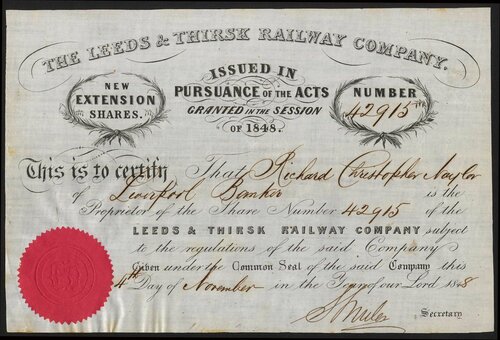 THE LEEDS & THIRSK RAILWAY COMPANY.
ISSUED IN
PURSUANCE OF THE ACTS
GRANTED IN THE SESSION
OF 1848.
NEW
EXTENSION
SHARES.
NUMBER
42915
This is to certify That Richard Christopher Naylor
of Liverpool Banker is the
Proprietor of the Share Number 42915 of the
LEEDS & THIRSK RAILWAY COMPANY subject
to the regulations of the said Company
Given under the Common Seal of the said Company this
4th Day of November in the Year of our Lord 1848
Secretary